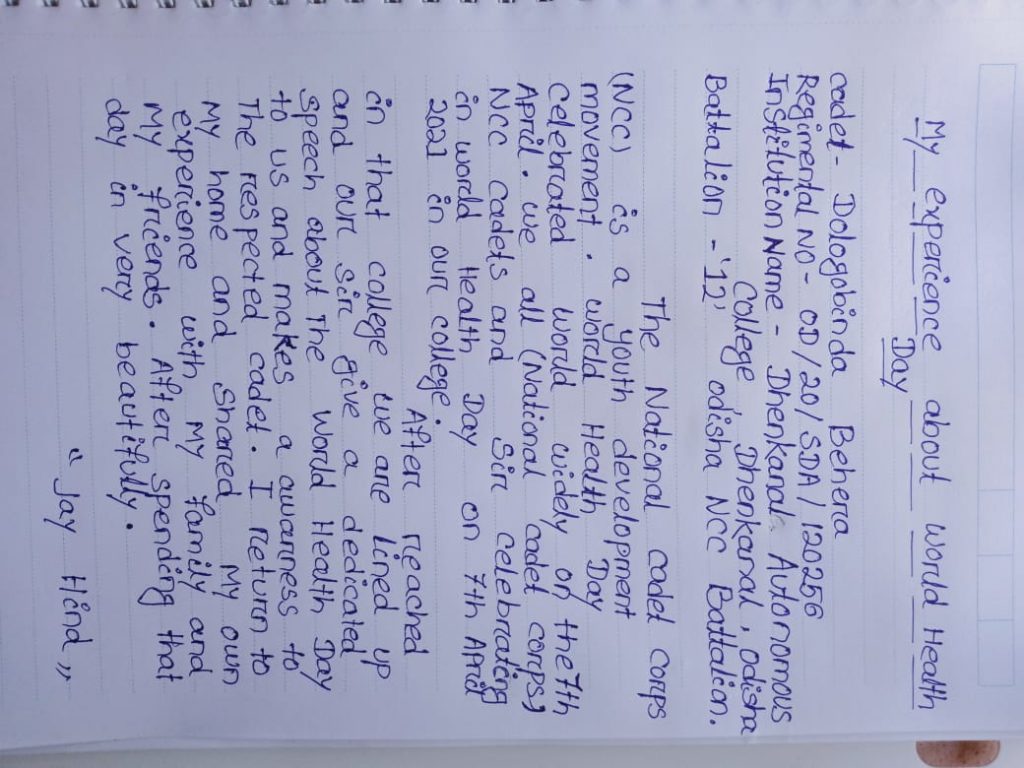 My experience about world Health
Day
cadet - Dologobinda Behera
Regimental NO - OD/20/SDA/120256
Institution Name - Dhenkanal Autonomous
College Dhenkanal, odisha
Battalion - '12' odisha NCC Battalion.
The National cadet corps
(NCC) is a youth development
movement. world Health Day
celebrated world widely on the 7th
April. we all (National cadet corps,
NCC cadets and Sir celebrating
in world Health Day on 7th April
2021 in our college.
After reached
in that college we are lined up
and our sir give a dedicated
speech about the World Health Day
to us and makes a awarness to
The respected cadet. I return to
My home and shared My own
experience with My family and
My friends. After spending that
day in very beautifully.
"Jay Hind"